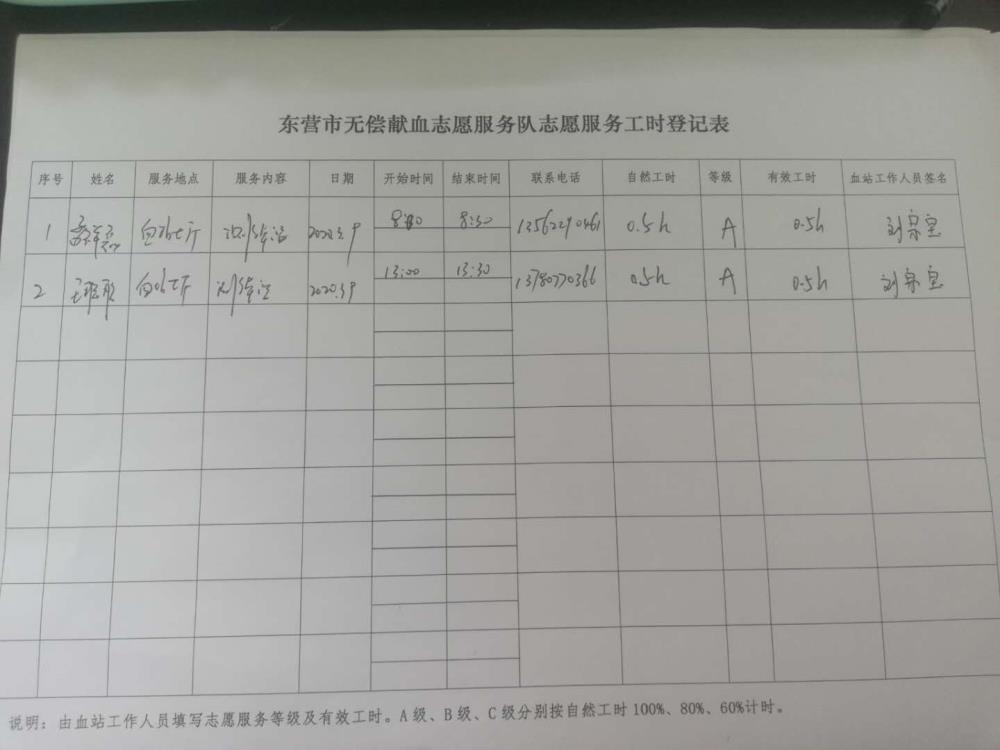 东营市无偿献血志愿服务队志愿服务工时登记表
序号 姓名 服务地点 服务内容 日期 开始时间 结束时间 联系电话 自然工时 等级 有效工时 血站工作人员签名
1 8:00 8:30 13562290461 0.5h A 0.5h 刘宗宝
2 2020.3.9 13:00 13:30 13780770366 0.5h A 0.5h 刘宗宝
说明：由血站工作人员填写志愿服务等级及有效工时。A级、B级、C级分别按自然工时100%、80%、60%计时。